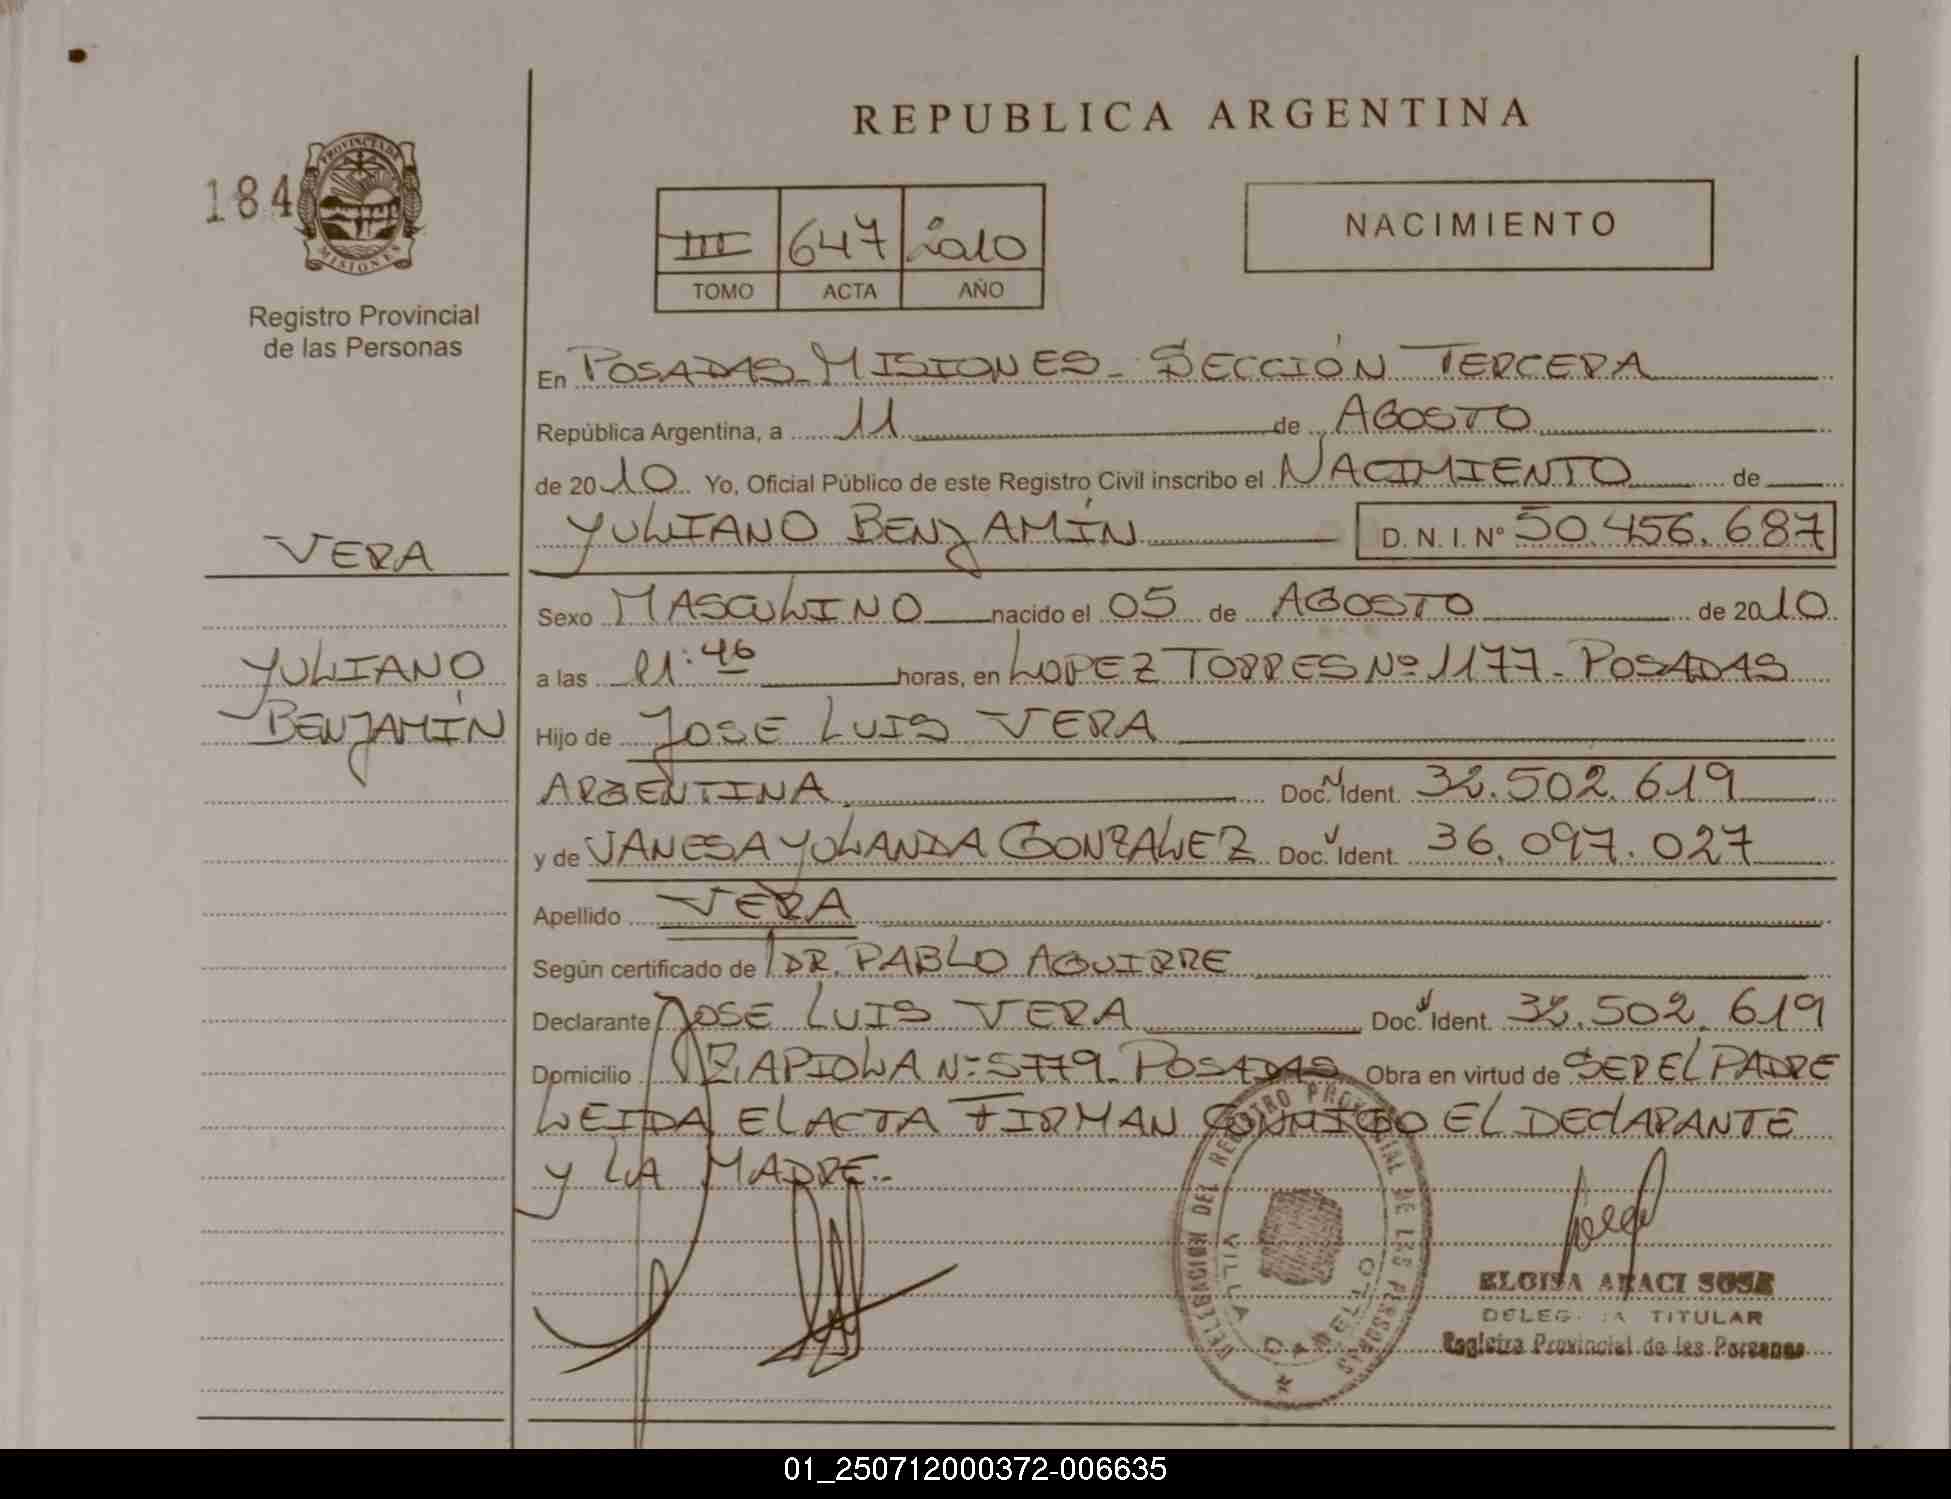 REPUBLICA ARGENTINA
184
PROVINCIA DE
MISIONES
Registro Provincial
de las Personas
III 647 2010
TOMO ACTA AÑO
NACIMIENTO
En POSADAS-MISIONES- SECCIÓN TERCERA
República Argentina, a 11 de AGOSTO
de 2010 Yo, Oficial Público de este Registro Civil inscribo el NACIMIENTO de
YULIANO BENJAMÍN D. N. I. Nº 50.456.687
VERA
Sexo MASCULINO nacido el 05 de AGOSTO de 2010
YULIANO
BENJAMÍN
a las 21:46 horas, en LOPEZ TORRES Nº 1177- POSADAS
Hijo de JOSE LUIS VERA
ARGENTINA Doc. Ident. 32.502.619
y de VANESA YOLANDA GONZALEZ Doc. Ident. 36.097.027
Apellido VERA
Según certificado de DR. PABLO AGUIRRE
Declarante JOSE LUIS VERA Doc. Ident. 32.502.619
Domicilio ZAPIOLA Nº 5779- POSADAS Obra en virtud de SER EL PADRE
LEIDA EL ACTA FIRMAN CONMIGO EL DECLARANTE
Y LA MADRE.-
DELEGACION DEL REGISTRO PROVINCIAL DE LAS PERSONAS
VILLA CABELLO
ELOISA ARACI SOSE
DELEG TITULAR
Registro Provincial de las Personas
01_250712000372-006635